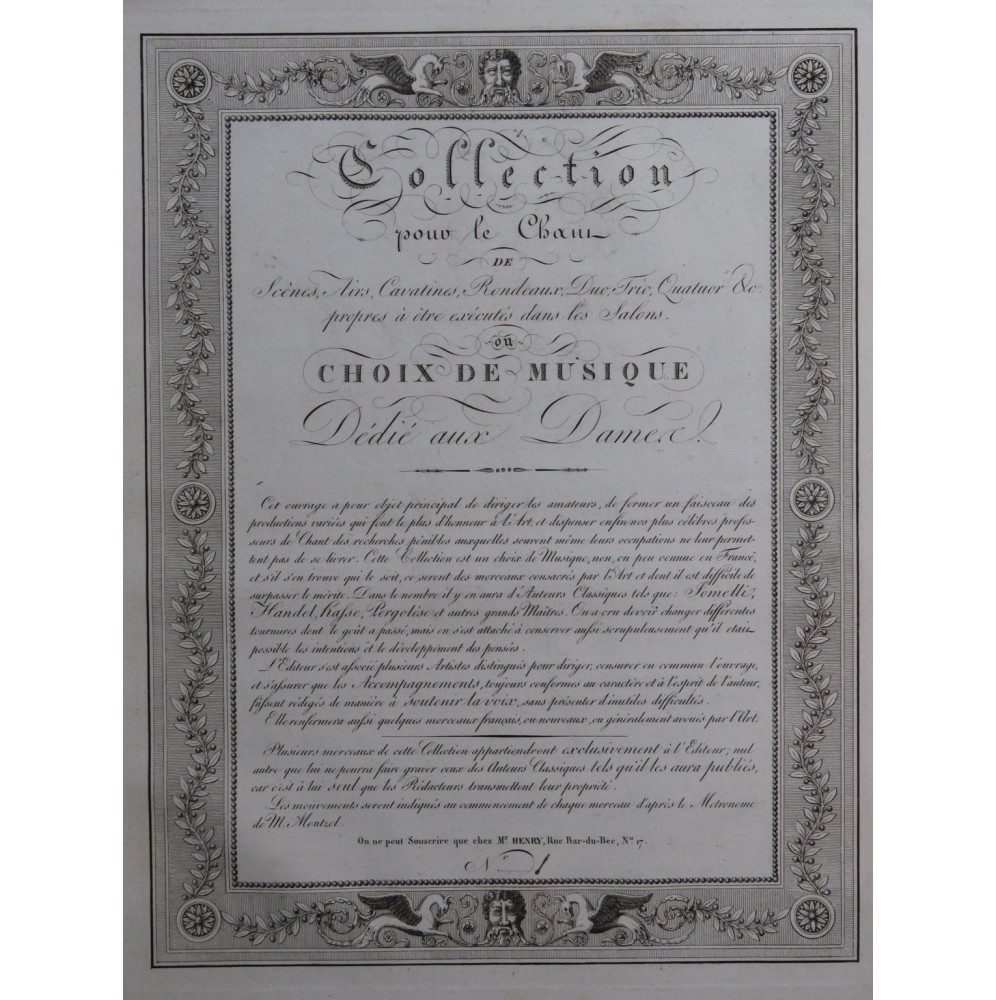 Collection
pour le Chant
DE
Scènes, Airs, Cavatines, Rondeaux, Duo, Trio, Quatuor &c.
propres à être exécutés dans les Salons.
ou
CHOIX DE MUSIQUE
Dédié aux Dames.
Cet ouvrage a pour objet principal de diriger les amateurs, de former un faisceau des
productions variées qui font le plus d'honneur à l'Art, et dispenser enfin nos plus célèbres profes-
seurs de Chant des recherches pénibles auxquelles souvent même leurs occupations ne leur permet-
tent pas de se livrer. Cette Collection est un choix de Musique, non, ou peu connue en France,
et s'il s'en trouve qui le soit, ce seront des morceaux consacrés par l'Art et dont il est difficile de
surpasser le mérite. Dans le nombre il y en aura d'Auteurs Classiques tels que: Jomelli,
Handel, Hasse, Pergolèse et autres grands Maîtres. On a cru devoir changer différentes
tournures dont le goût a passé, mais on s'est attaché à conserver aussi scrupuleusement qu'il était
possible les intentions et le développement des pensées.
L'Editeur s'est associé plusieurs Artistes distingués pour diriger, censurer en commun l'ouvrage,
et s'assurer que les Accompagnements, toujours conformes au caractère et à l'esprit de l'auteur,
fussent rédigés de manière à soutenir la voix, sans présenter d'inutiles difficultés.
Elle renfermera aussi quelques morceaux français, ou nouveaux, ou généralement avoués par l'Art.
Plusieurs morceaux de cette Collection appartiendront exclusivement à l'Editeur; nul
autre que lui ne pourra faire graver ceux des Auteurs Classiques tels qu'il les aura publiés,
car c'est à lui seul que les Rédacteurs transmettent leur propriété.
Les mouvements seront indiqués au commencement de chaque morceau d'après le Metronome
de M. Mentzel.
On ne peut Souscrire que chez Mr. HENRY, Rue Bar-du-Bec, No. 17.
No. 1